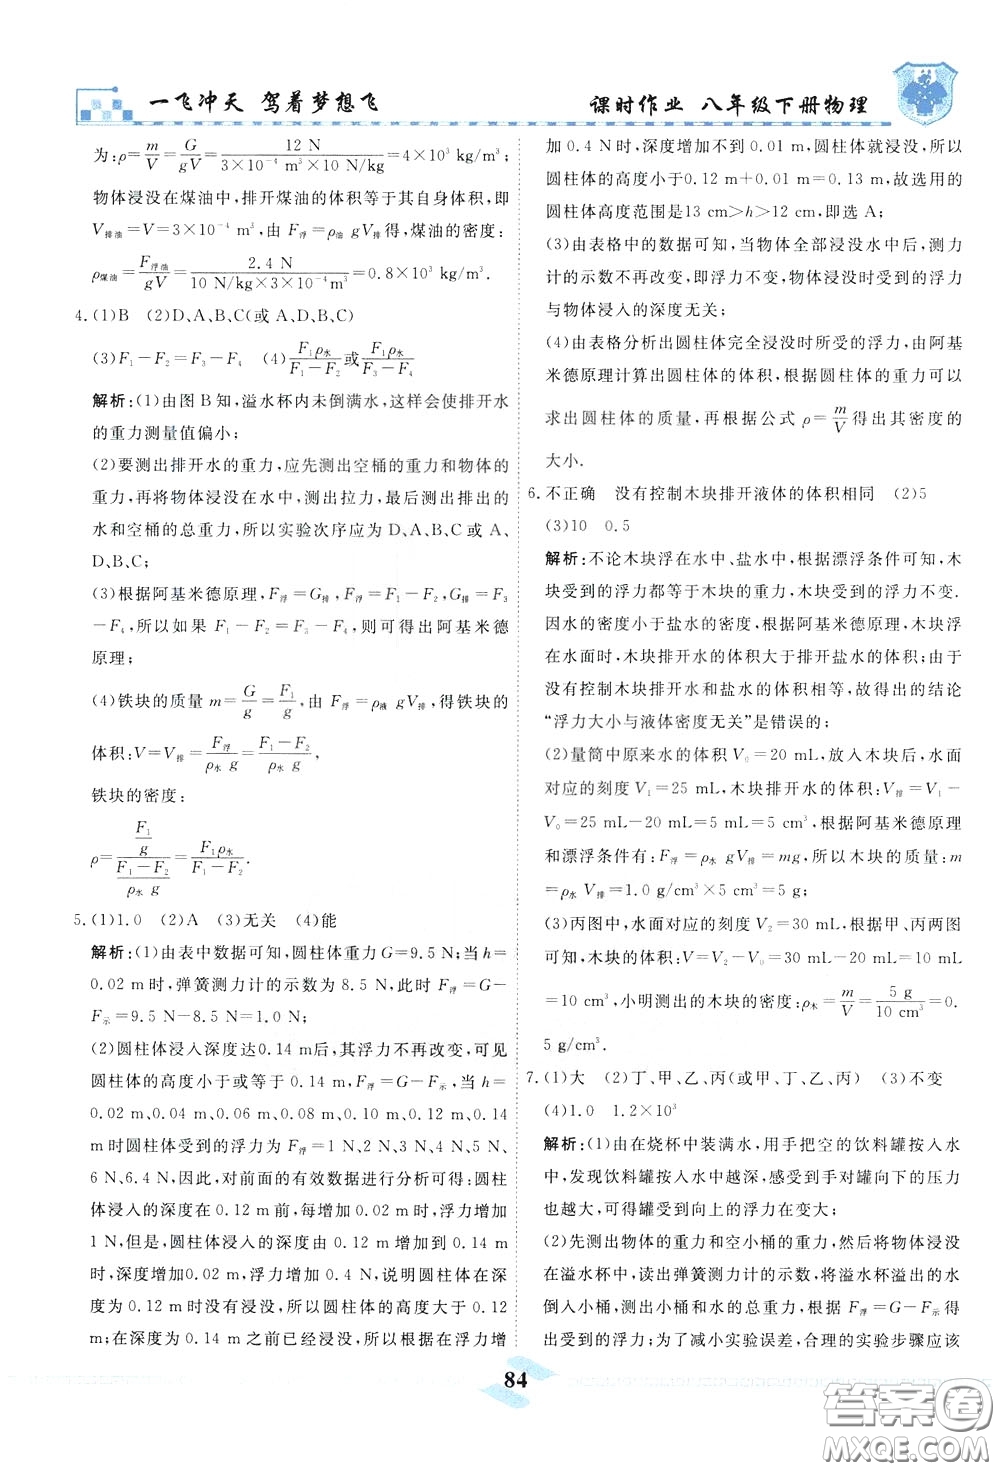 一飞冲天 驾着梦想飞
课时作业 八年级下册物理
为:ρ=m/V=G/gV=12 N/(3×10⁻⁴ m³×10 N/kg)=4×10³ kg/m³;
物体浸没在煤油中,排开煤油的体积等于其自身体积,即
V排油=V=3×10⁻⁴ m³,由 F浮=ρ油 gV排得,煤油的密度:
ρ煤油=F浮油/gV=2.4 N/(10 N/kg×3×10⁻⁴ m³)=0.8×10³ kg/m³.
4.(1)B (2)D、A、B、C(或 A、D、B、C)
(3)F₁-F₂=F₃-F₄ (4)F₁ρ水/(F₁-F₂)或F₁ρ水/(F₃-F₄)
解析:(1)由图 B 知,溢水杯内未倒满水,这样会使排开水
的重力测量值偏小;
(2)要测出排开水的重力,应先测出空桶的重力和物体的
重力,再将物体浸没在水中,测出拉力,最后测出排出的
水和空桶的总重力,所以实验次序应为 D、A、B、C 或 A、
D、B、C;
(3)根据阿基米德原理,F浮=G排,F浮=F₁-F₂,G排=F₃
-F₄,所以如果 F₁-F₂=F₃-F₄,则可得出阿基米德
原理;
(4)铁块的质量 m=G/g=F₁/g,由 F浮=ρ液 gV排,得铁块的
体积:V=V排=F浮/(ρ水 g)=(F₁-F₂)/(ρ水 g),
铁块的密度:
ρ=(F₁/g)/((F₁-F₂)/(ρ水 g))=F₁ρ水/(F₁-F₂).
5.(1)1.0 (2)A (3)无关 (4)能
解析:(1)由表中数据可知,圆柱体重力 G=9.5 N;当 h=
0.02 m时,弹簧测力计的示数为 8.5 N,此时 F浮=G-
F示=9.5 N-8.5 N=1.0 N;
(2)圆柱体浸入深度达0.14 m后,其浮力不再改变,可见
圆柱体的高度小于或等于 0.14 m,F浮=G-F示,当 h=
0.02 m、0.04 m、0.06 m、0.08 m、0.10 m、0.12 m、0.14
m 时圆柱体受到的浮力为 F浮=1 N、2 N、3 N、4 N、5 N、
6 N、6.4 N,因此,根据以上有效数据进行分析可得:圆柱
体浸入的深度在 0.12 m 前,每增加 0.02 m,浮力增加
1 N,但是,圆柱体浸入的深度由 0.12 m 到达 0.14 m
时,深度增加0.02 m,浮力增加 0.4 N,说明圆柱体在深
度为 0.12 m时没有浸没,所以圆柱体的高度大于 0.12
m;在深度为 0.14 m 之前已经浸没,所以根据在浮力增
加 0.4 N时,深度增加不到 0.01 m,圆柱体就浸没,所以
圆柱体的高度小于0.12 m+0.01 m=0.13 m,故选用的
圆柱体高度范围是13 cm>h>12 cm,即选 A;
(3)由表格中的数据可知,当物体全部浸没水中后,测力
计的示数不再改变,即浮力不变,物体浸没时受到的浮力
与物体浸入的深度无关;
(4)由表格分析出圆柱体完全浸没时所受的浮力,由阿基
米德原理计算出圆柱体的体积,根据圆柱体的重力可以
求出圆柱体的质量,再根据公式 ρ=m/V得出其密度的
大小.
6.不正确 没有控制木块排开液体的体积相同 (2)5
(3)10 0.5
解析:不论木块浮在水中、盐水中,根据漂浮条件可知,木
块受到的浮力都等于木块的重力,木块受到的浮力不变.
因水的密度小于盐水的密度,根据阿基米德原理,木块浮
在水面时,木块排开水的体积大于排开盐水的体积;由于
没有控制木块排开水和盐水的体积相等,故得出的结论
“浮力大小与液体密度无关”是错误的;
(2)量筒中原来水的体积 V₀=20 mL,放入木块后,水面
对应的刻度 V₁=25 mL,木块排开水的体积:V排=V₁-
V₀=25 mL-20 mL=5 mL=5 cm³,根据阿基米德原理
和漂浮条件有:F浮=ρ水 gV排=mg,所以木块的质量:m
=ρ水 V排=1.0 g/cm³×5 cm³=5 g;
(3)丙图中,水面对应的刻度 V₂=30 mL,根据甲、丙两图
可知,木块的体积:V=V₂-V₀=30 mL-20 mL=10 mL
=10 cm³,小明测出的木块的密度:ρ木=m/V=5 g/10 cm³=0.
5 g/cm³.
7.(1)大 (2)丁、甲、乙、丙(或甲、丁、乙、丙) (3)不变
(4)1.0 1.2×10³
解析:(1)由在烧杯中装满水,用手把空的饮料罐按入水
中,发现饮料罐按入水中越深,感受到手对罐向下的压力
也越大,可得罐受到向上的浮力在变大;
(2)先测出物体的重力和空小桶的重力,然后将物体浸没
在溢水杯中,读出弹簧测力计的示数,将溢水杯溢出的水
倒入小桶,测出小桶和水的总重力,根据 F浮=G-F示得
出受到的浮力;为了减小实验误差,合理的实验步骤应该
84
答案圈
MXQE.COM